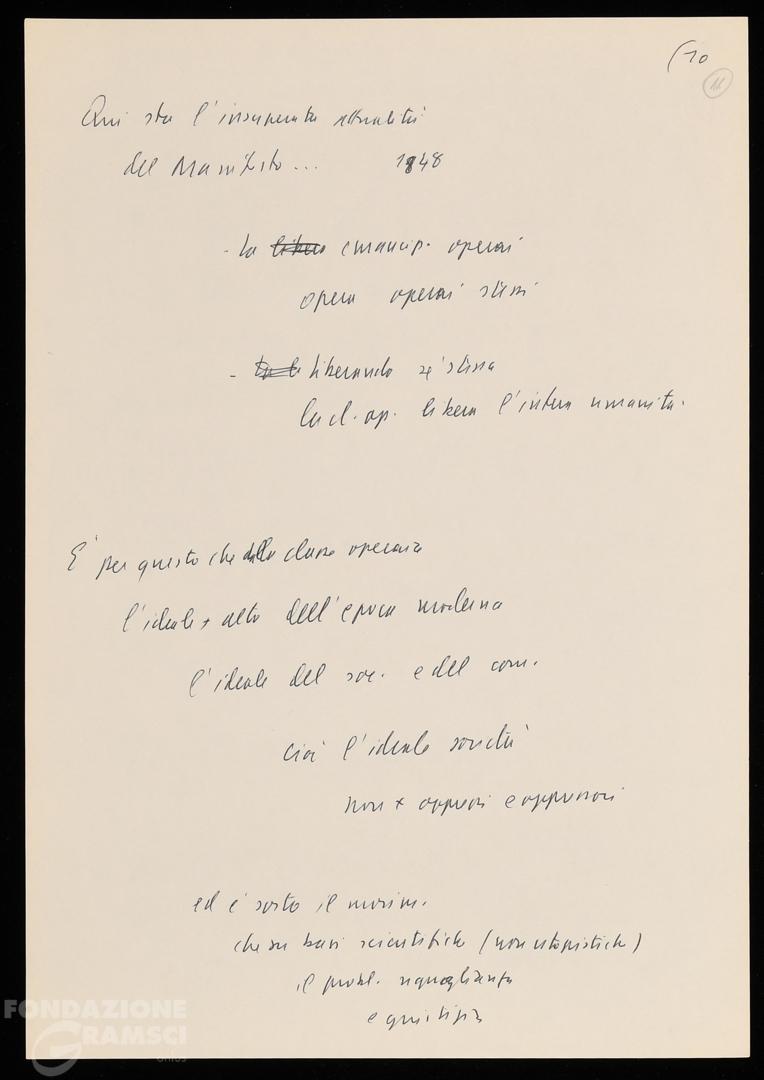 (10
11
Qui sta l'insuperata attualità
del Manifesto... 1848
- la libera emancip. operai
opera operai stessi
- liberando se' stessa
la cl. op. libera l'intera umanità.
E' per questo che dalla classe operaia
l'ideale + alto dell'epoca moderna
l'ideale del soc. e del com.
cioè l'ideale società
non + oppressi e oppressori
ed è sorto il movim.
che su basi scientifiche (non utopistiche)
il probl. uguaglianza
e giustizia
FONDAZIONE
GRAMSCI
onlus